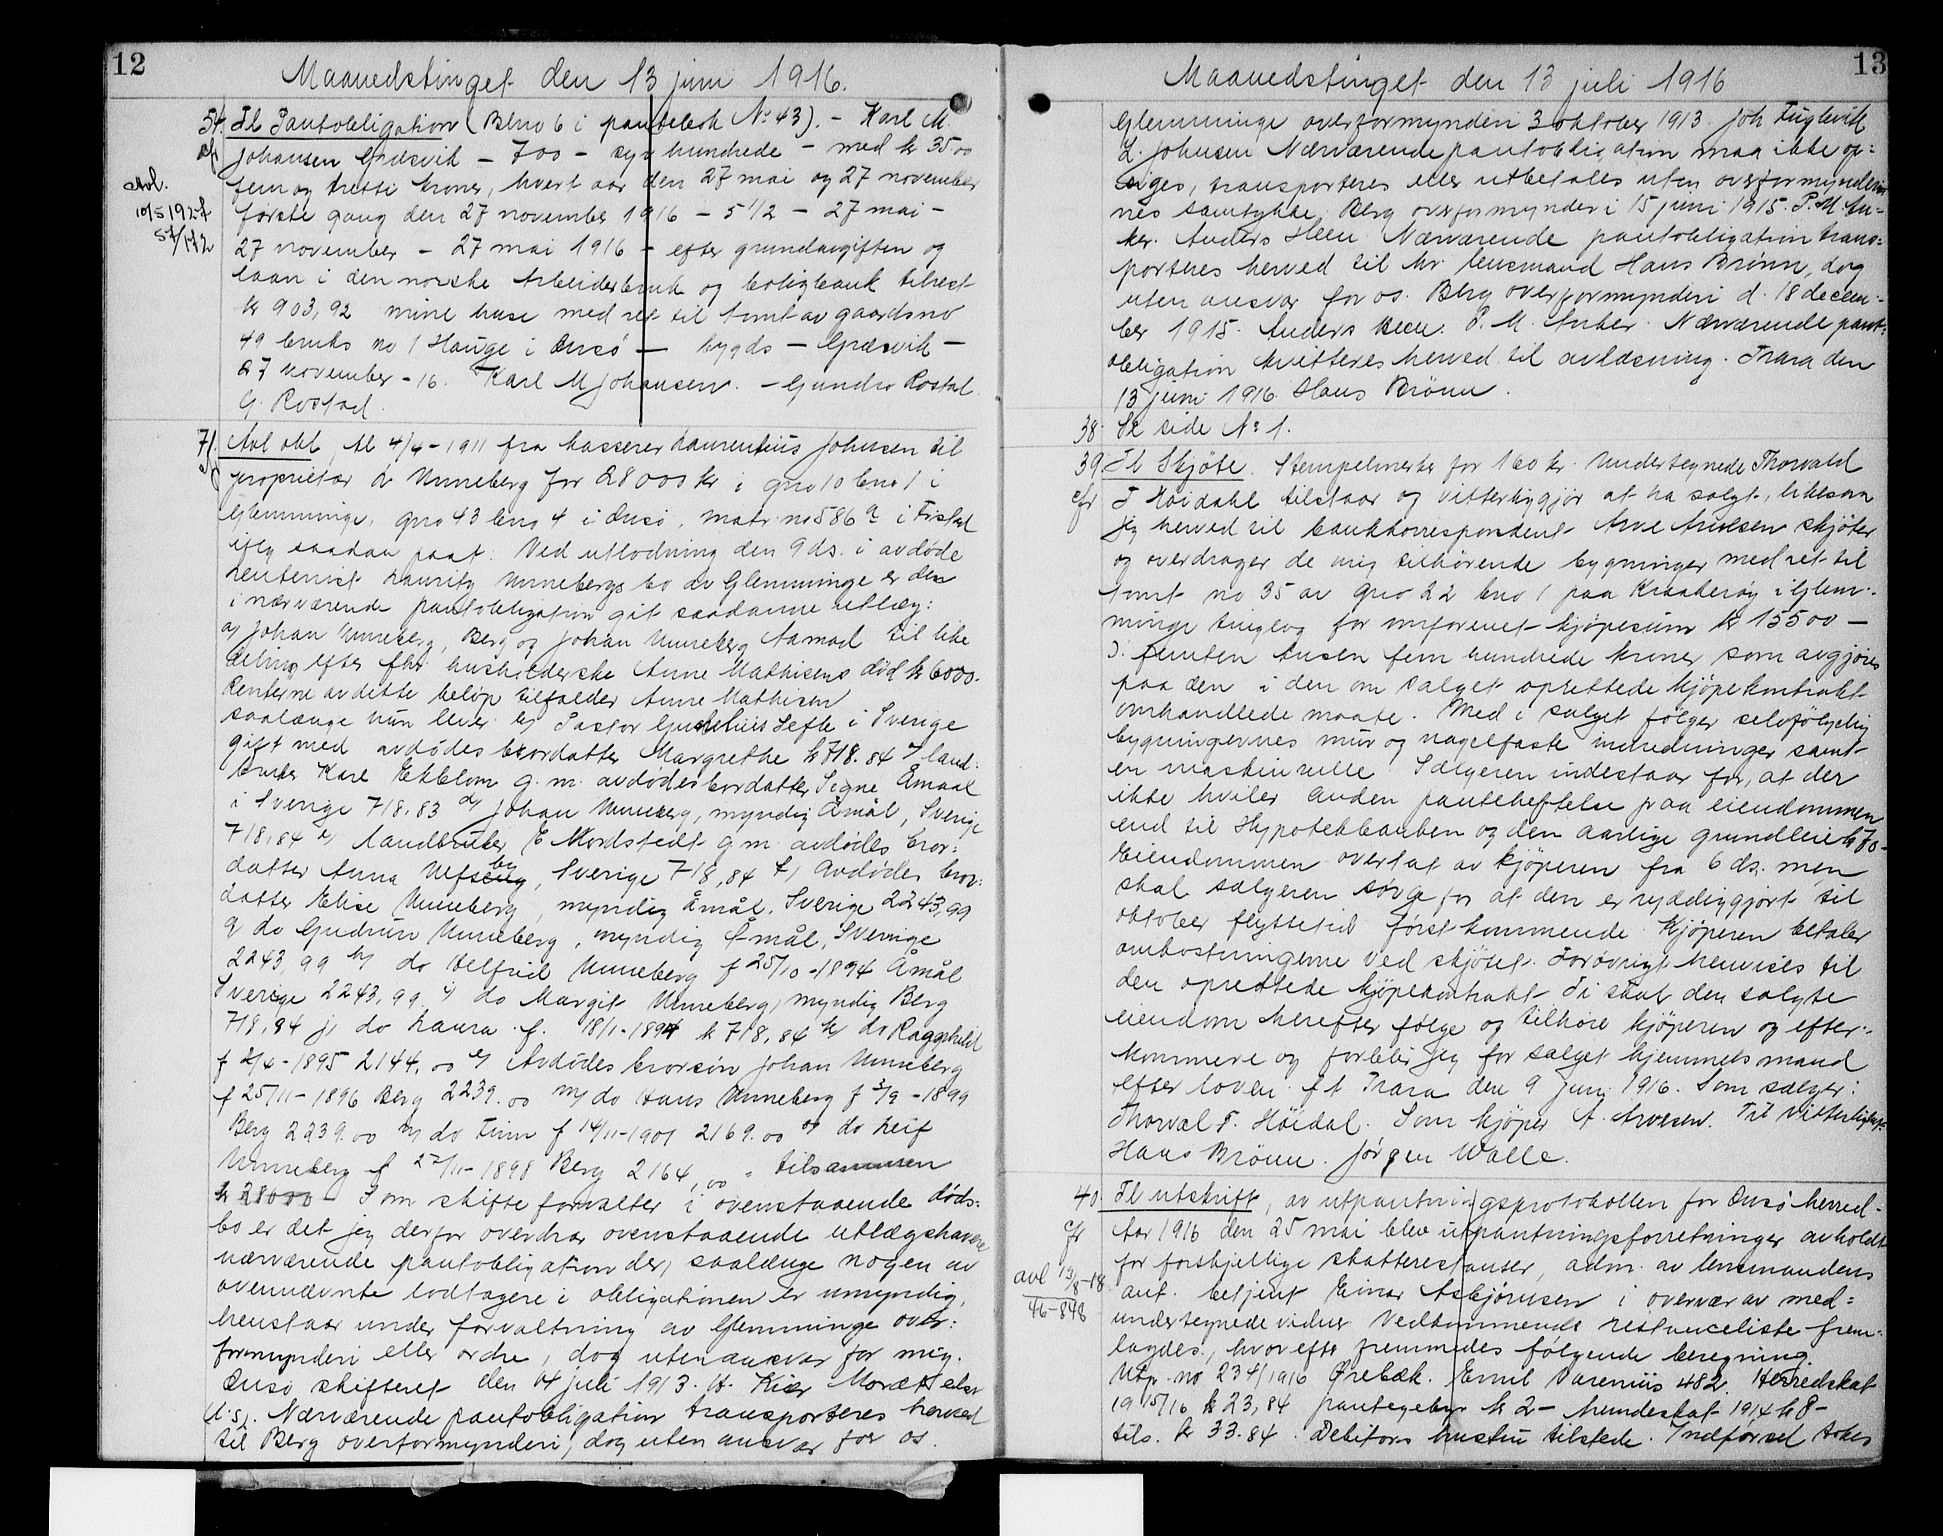 12
Maanedstinget den 13 juni 1916.
54. Tl Pantobligation (Blno 6 i pantebok No 43). - Karl M.
cfr Johansen Græsvik - 700 - syv hundrede - med kr 3500
Avl.
10/5 1927
57/172
fem og tretti kroner, hvert aar den 27 mai og 27 november
første gang den 27 november 1916 - 5 1/2 - 27 mai -
27 november - 27 mai 1916 - efter grundavgiften og
laan i den norske Arbeiderbruk og boligbank tilrest
kr 903,92 mine huse med ret til tomt av gaardsno
49 bruks no 1 Hauge i Onsö - bygds - Græsvik -
27 november - 16. Karl M Johansen. - Gundro Rostad.
G. Rostad.
71. Avl obl, tl 4/4 - 1911 fra kasserer Laurentius Johnsen til
cfr proprietær Unneberg for 28000 kr i gno 10 bno 1 i
Glemminge, gno 43 bno 4 i Onsö, matr. no 586 a i Fr.stad
iflg saadan pant: Ved utlodning den 9 ds. i avdöde
rentenist Lauritz Unnebergs bo av Glemminge er den
i nærværende pantobligation git saadanne utlæg:
a) Johan Unneberg, Berg og Johan Unneberg Aamod til like
deling efter fhv husholderske Anne Mathisens död kr 6000.
Renterne av dette belöp tilfalder Anne Mathisen
saalænge hun lever b) Pastor Lefte i Sverige
gift med avdödes brordatter Margrethe kr 718.84 c) land-
bruker Karl Ekblom g. m. avdödes brordatter Signe Åmaal
i Sverige 718,83 d) Johan Unneberg, myndig Åmål, Sverige
718,84 e) Landbruker E Mordstedt g m avdödes bror-
datter Anna , Sverige 718,84 f) Avdödes bror-
datter Elise Unneberg, myndig Åmål. Sverige 2243,99
g do Gudrun Unneberg, myndig Åmål, Sverige
2243,99 h) do Velfrid Unneberg f 25/10 - 1894 Åmål
Sverige 2243,99 i) do Margit Unneberg, myndig Berg
718,84 j) do Laura f. 18/1 - 1894 kr 718,84 k) do Ragnhild
f 2/4 - 1895 2144,00 l) Avdödes brorsön Johan Unneberg
f 25/11 - 1896 Berg 2239.00 m) do Hans Unneberg f 3/9 - 1899
Berg 2239.00 n) do Finn f 14/11 - 1901 2169.00 o) do Leif
Unneberg f 27/11 - 1898 Berg 2164,00 tilsammen
kr 28000 - Som skifteforvalter i ovenstaaende döds-
bo er det jeg derfor overdrar ovenstaaende utlægshavere
nærværende pantobligation der, saalænge nogen av
ovennævnte lodtagere i obligationen er umyndig,
henstaar under forvaltning av Glemminge over-
formynderi eller ordre, dog uten ansvar for mig.
Onsö skifteret den 4 juli 1913. A. Kiær
l. s. Nærværende pantobligation transporteres herved
til Berg overformynderi, dog uten ansvar for os.
13
Maanedstinget den 13 juli 1916
Glemminge overformynderi 3 oktober 1913. Joh Fuglevik
L. Johnsen Nærværende pantobligation maa ikke op-
siges, transporteres eller utbetales uten overformynderi-
nes samtykke. Berg overformynderi 15 juni 1915. P. M. An-
ker. Anders Heen. Nærværende pantobligation trans-
porteres herved til hr. lensmand Hans Brönn, dog
uten ansvar for os. Berg overformynderi d. 18 decem-
ber 1915. Anders Heen. P. M. Anker. Nærværende pant-
obligation kvitteres herved til avlæsning. Trara den
13 juni 1916 Hans Brönn.
38. Se side No 1.
39. Tl Skjöte. Stempelmerke for 160 kr. Undertegnede Thorvald
cfr T Höidahl tilstaar og vitterliggjör at ha solgt, likesom
jeg herved til bankkorrespondent Arve Arvesen skjöter
og overdrager de mig tilhörende bygninger med ret til
tomt no 35 av gno 22 bno 1 paa Kraakeröy i Glem-
minge tinglag for omforenet kjöpesum kr 15500 -
d. femten tusen fem hundrede kroner som avgjöres
paa den i den om salget oprettede kjöpekontrakt
omhandlede maate. Med i salget fölger selvfölgelig
bygningernes mur og nagelfaste indredninger samt
en maskinrulle Sælgeren indestaar for, at der
ikke hviler anden panteheftelse paa eiendommen
end til Hypotekbanken og den aarlige grundleie kr 70 -
Eiendommen overtat av kjöperen fra 6 ds. men
skal sælgeren sörge for at den er ryddiggjort til
oktober flyttetid förstkommende Kjöperen betaler
omkostningerne ved skjötet. Forövrigt henvises til
den oprettede kjöpekontrakt Ti skal den solgte
eiendom herefter fölge og tilhöre kjöperen og efter-
kommere og forblir jeg for salget hjemmelsmand
efter loven. p t Trara den 9 juni 1916. Som sælger:
Thorval T. Höidal. Som kjöper A. Arvesen. Til Vitterlighet:
Hans Brönn. Jörgen Walle.
40. Tl utskrift, av utpantningsprotokollen for Onsö herred -
cfr Aar 1916 den 25 mai blev utpantningsforretninger avholdt
for forskjellige skatterestanser, adm. av lensmandens
avl 13/8-18
46-848
aut. betjent Einar Asbjörnsen i overvær av med-
undertegnede vidner Vedkommende restanceliste frem-
lagdes, hvorefter fremmedes fölgende beregning.
Utp. no 234/1916 Ørebæk. Emil Varenius 482. Herredskat
1915/16 kr 23,84 pantegebyr kr 2 - hundeskat 1914 kr 8 -
tils. kr 33.84. Debitors hustru tilstede. Indförsel tokes